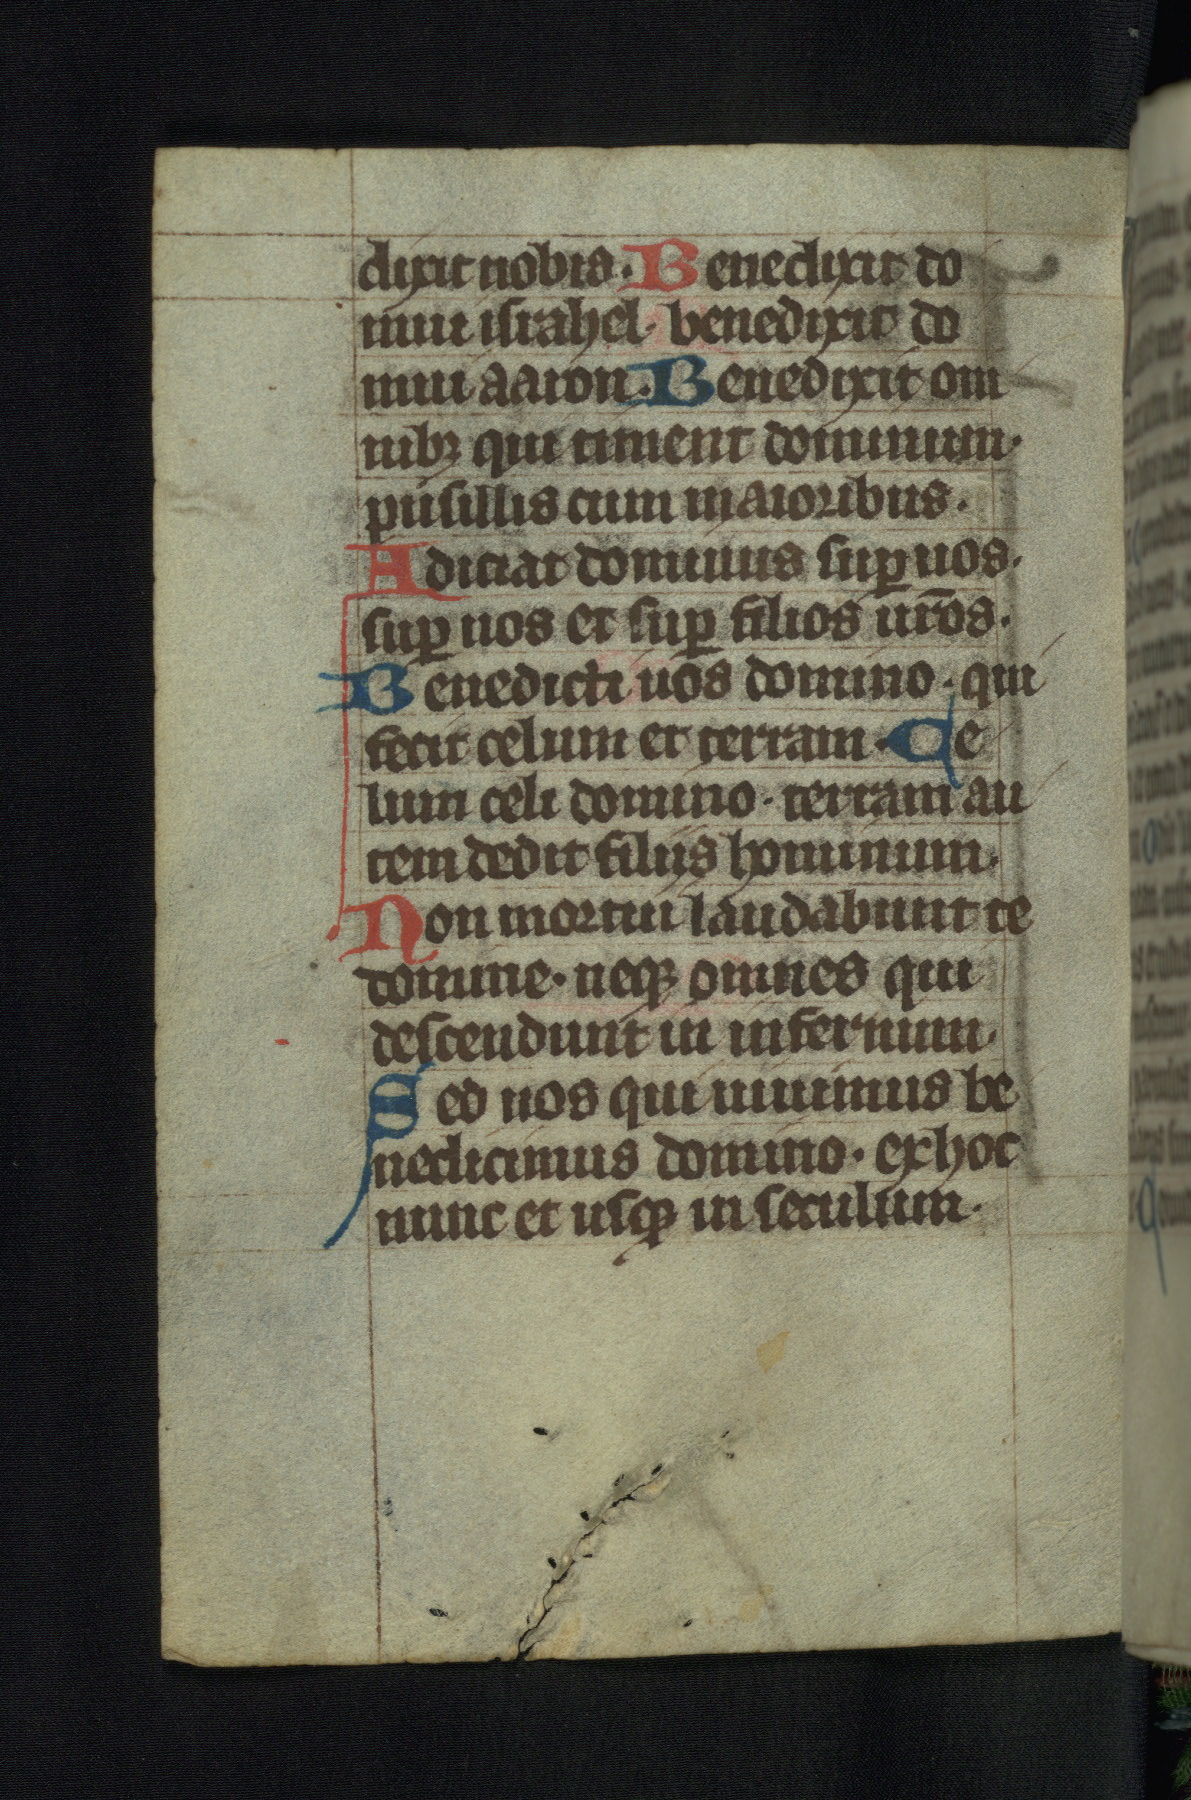 dixit nobis. Benedixit do
mui israhel. benedixit do
mui aaron. Benedixit om
nibꝫ qui timent dominum.
pusillis cum maioribus.
Adiciat dominus suꝑ uos.
suꝑ uos et suꝑ filios ur̄os.
Benedicti uos domino. qui
fecit celum et terram. Ce
lum celi domino. terram au
tem dedit filiis hominum.
Non mortui laudabunt te
domine. neqꝫ omnes qui
descendunt in infernum.
Sed nos qui uiuimus be
nedicimus domino. ex hoc
nunc et usqꝫ in seculum.